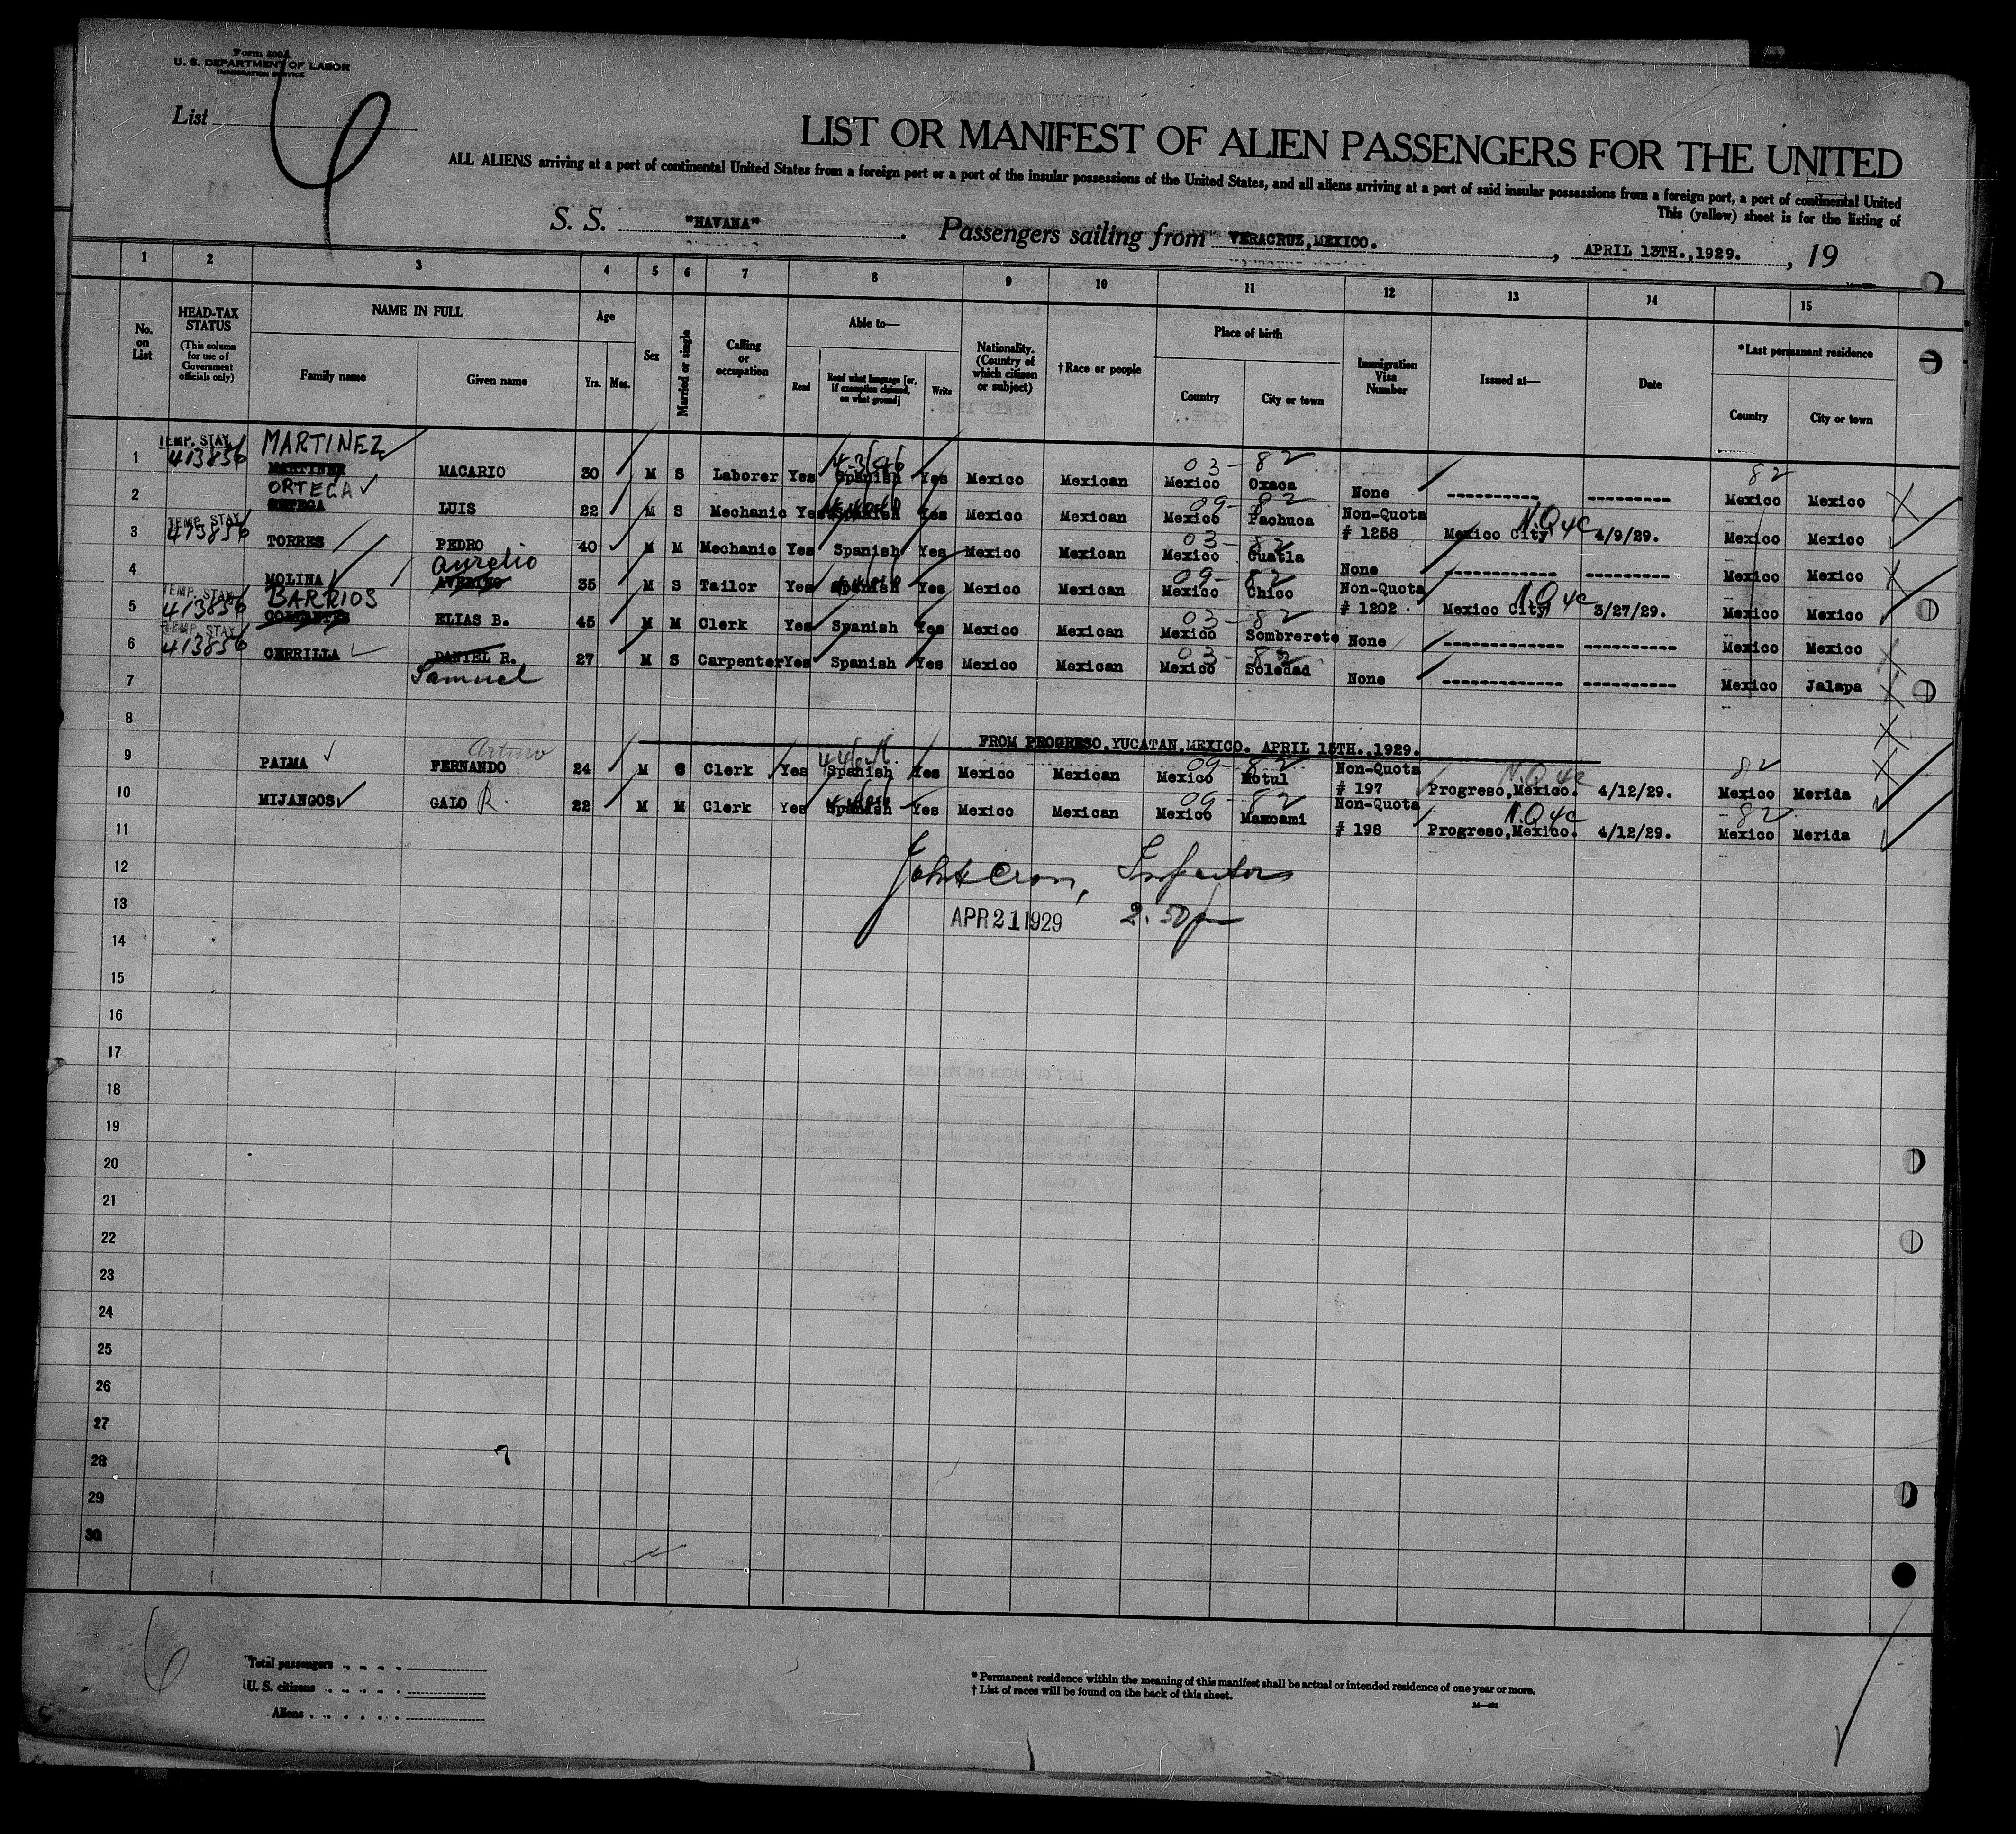 Form 500A
U. S. DEPARTMENT OF LABOR
IMMIGRATION SERVICE
List 6
LIST OR MANIFEST OF ALIEN PASSENGERS FOR THE UNITED
ALL ALIENS arriving at a port of continental United States from a foreign port or a port of the insular possessions of the United States, and all aliens arriving at a port of said insular possessions from a foreign port, a port of continental United
This (yellow) sheet is for the listing of
S. S. "HAVANA". Passengers sailing from VERACRUZ, MEXICO. , APRIL 13TH.,1929. , 19
1 2 3 4 5 6 7 8 9 10 11 12 13 14 15
No. on List
HEAD-TAX STATUS
(This column for use of Government officials only)
NAME IN FULL
Family name
Given name
Age
Yrs. Mos.
Sex
Married or single
Calling or occupation
Able to—
Read
Read what language [or, if exemption claimed, on what ground]
Write
Nationality. (Country of which citizen or subject)
† Race or people
Place of birth
Country
City or town
Immigration Visa Number
Issued at—
Date
* Last permanent residence
Country
City or town
1 TEMP. STAY 413856 MARTINEZ MARTINEZ MACARIO 30 M S Laborer Yes Spanish Yes Mexico Mexican 03-82 Mexico Oxaca None ---------- --------- 82 Mexico Mexico
2 ORTEGA ORTEGA LUIS 22 M S Mechanic Yes Spanish Yes Mexico Mexican 09-82 Mexico Pachuca Non-Quota # 1258 Mexico City N.Q 4c 4/9/29. Mexico Mexico
3 TEMP. STAY 413856 TORRES PEDRO 40 M M Mechanic Yes Spanish Yes Mexico Mexican 03-82 Mexico Cuatla None ------------ --------- Mexico Mexico
4 MOLINA Aurelio 35 M S Tailor Yes Spanish Yes Mexico Mexican 09-82 Mexico Chico Non-Quota # 1202 Mexico City N.Q 4c 3/27/29. Mexico Mexico
5 TEMP. STAY 413856 BARRIOS ELIAS B. 45 M M Clerk Yes Spanish Yes Mexico Mexican 03-82 Mexico Sombrerete None ------------- ---------- Mexico Mexico
6 TEMP. STAY 413856 CERRILLA DANIEL R. Samuel 27 M S Carpenter Yes Spanish Yes Mexico Mexican 03-82 Mexico Soledad None ------------- ---------- Mexico Jalapa
7
8 FROM PROGRESO, YUCATAN, MEXICO. APRIL 15TH.,1929.
9 PALMA Arturo FERNANDO 24 M S Clerk Yes Spanish Yes Mexico Mexican 09-82 Mexico Motul Non-Quota # 197 Progreso, Mexico. N.Q 4c 4/12/29. 82 Mexico Merida
10 MIJANGOS GALO R. 22 M M Clerk Yes Spanish Yes Mexico Mexican 09-82 Mexico Maxcami Non-Quota # 198 Progreso, Mexico. N.Q 4c 4/12/29. 82 Mexico Merida
11
12 Inspector
13 APR 21 1929 2.50 pm
14
15
16
17
18
19
20
21
22
23
24
25
26
27
28
29
30
6
Total passengers
U. S. citizens
Aliens
* Permanent residence within the meaning of this manifest shall be actual or intended residence of one year or more.
† List of races will be found on the back of this sheet.